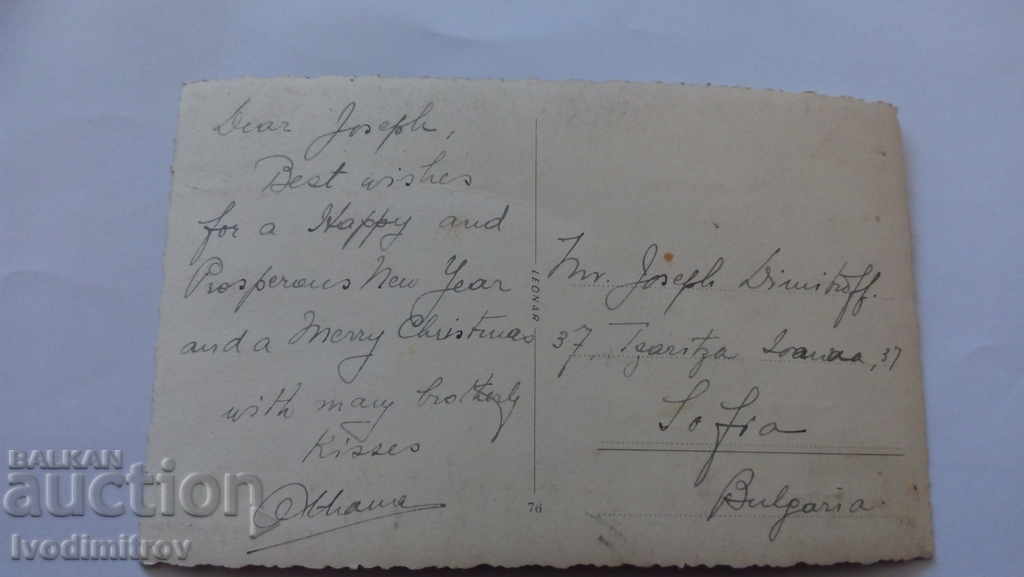 Dear Joseph,
Best wishes
for a Happy and
Prosperous New Year
and a Merry Christmas
with many brotherly
Kisses
LEONAR
76
Mr. Joseph Dimitroff.
37, Tzaritza Ioanna, 37
Sofia
Bulgaria
BALKAN
auction
Ivodimitrov